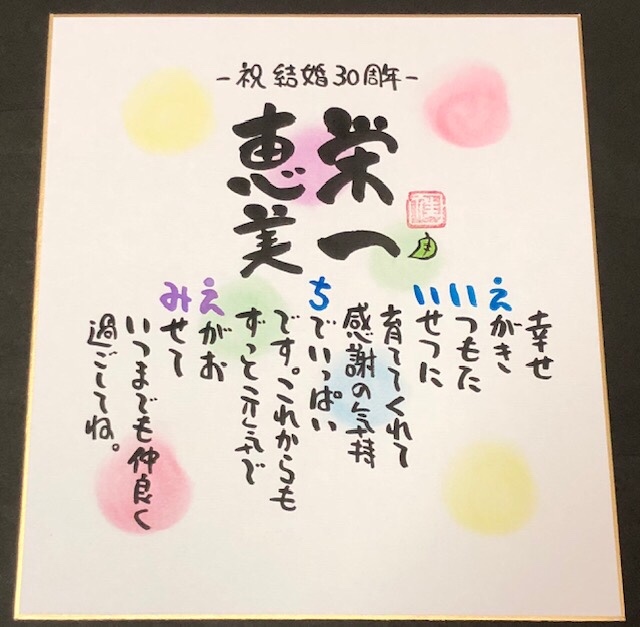 -祝 結婚30周年-
栄一
恵美
幸せ
えがき
いつもた
いせつに
育ててくれて
感謝の気持
ちでいっぱい
です。これからも
ずっと元気で
えがお
みせて
いつまでも仲良く
過ごしてね。